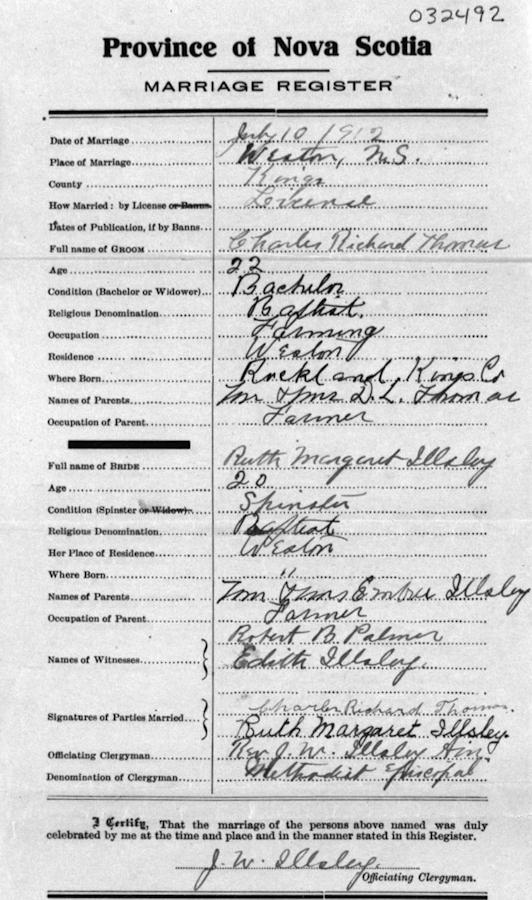 032492
Province of Nova Scotia
MARRIAGE REGISTER
Date of Marriage July 10 1912
Place of Marriage Weston, N.S.
County Kings
How Married: by License or Banns License
Dates of Publication, if by Banns
Full name of GROOM Charles Richard Thomas
Age 22
Condition (Bachelor or Widower) Bachelor
Religious Denomination Baptist.
Occupation Farming
Residence Weston
Where Born Rockland, Kings Co
Names of Parents Mr & Mrs D. L. Thomas
Occupation of Parent Farmer
Full name of BRIDE Ruth Margaret Illsley
Age 20
Condition (Spinster or Widow) Spinster
Religious Denomination Baptist
Her Place of Residence Weston
Where Born "
Names of Parents Mr & Mrs Illsley
Occupation of Parent Farmer
Names of Witnesses Robert B. Palmer
Edith Illsley.
Signatures of Parties Married Charles Richard Thomas.
Ruth Margaret Illsley.
Officiating Clergyman Rev. J. W. Illsley
Denomination of Clergyman Methodist Episcopal
I Certify, That the marriage of the persons above named was duly
celebrated by me at the time and place and in the manner stated in this Register.
J. W. Illsley.
Officiating Clergyman.